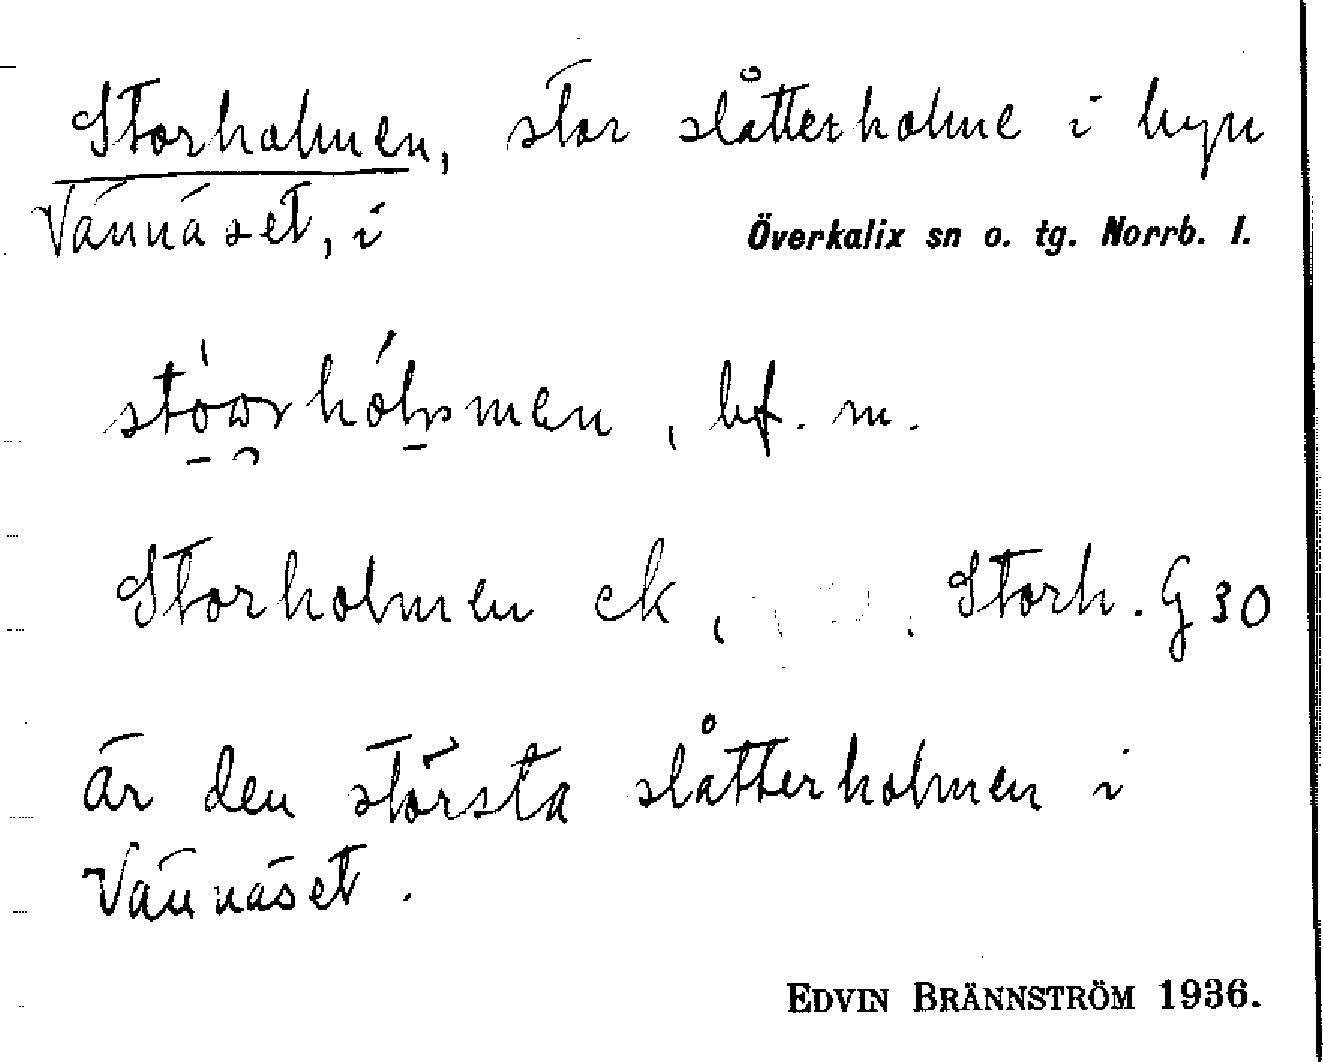 Storholmen, stor slåtterholme i byn
Vännäset, i Överkalix sn o. tg. Norrb. l.
bf. m.
Storholmen ek, Storh. G 30
är den största slåtterholmen i
Vännäset.
EDVIN BRÄNNSTRÖM 1936.